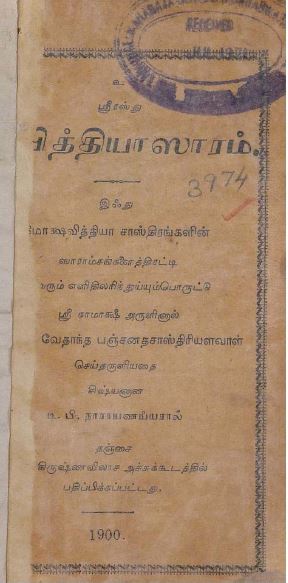 உ
ஸ்ரீரஸ்து
வித்தியாஸாரம்.
3974
இஃது
மோக்ஷவித்தியா சாஸ்திரங்களின்
ஸாராம்சங்களைத்திரட்டி
வரும் எளிதிலறிந்துய்யும்பொருட்டு
ஸ்ரீ காமாக்ஷி அருளினால்
வேதாந்த பஞ்சனதசாஸ்திரியளவாள்
செய்தருளியதை
சிஷ்யனான
டி. பி. நாராயணய்யரால்
தஞ்சை
கிருஷ்ணவிலாச அச்சுக்கூடத்தில்
பதிப்பிக்கப்பட்டது.
1900.